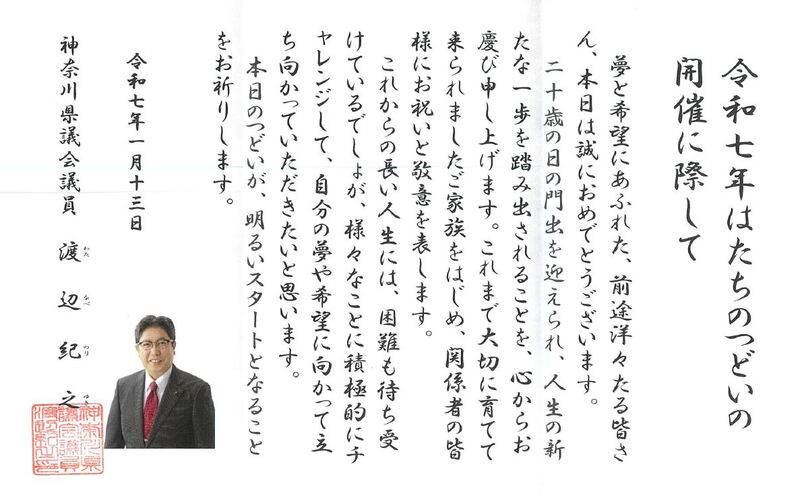 令和七年はたちのつどいの
開催に際して
夢と希望にあふれた、前途洋々たる皆さ
ん、本日は誠におめでとうございます。
二十歳の日の門出を迎えられ、人生の新
たな一歩を踏み出されることを、心からお
慶び申し上げます。これまで大切に育てて
来られましたご家族をはじめ、関係者の皆
様にお祝いと敬意を表します。
これからの長い人生には、困難も待ち受
けているでしょが、様々なことに積極的にチ
ャレンジして、自分の夢や希望に向かって立
ち向かっていただきたいと思います。
本日のつどいが、明るいスタートとなること
をお祈りします。
令和七年一月十三日
神奈川県議会議員 渡辺紀之
わた なべ のり
神奈川県
議会議員